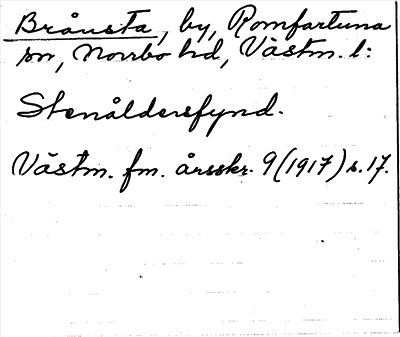 Brånsta, by, Romfartuna
sn, Norrbo hd, Västm. l:
Stenåldersfynd.
Västm. fm. årsskr. 9 (1917) s. 17.